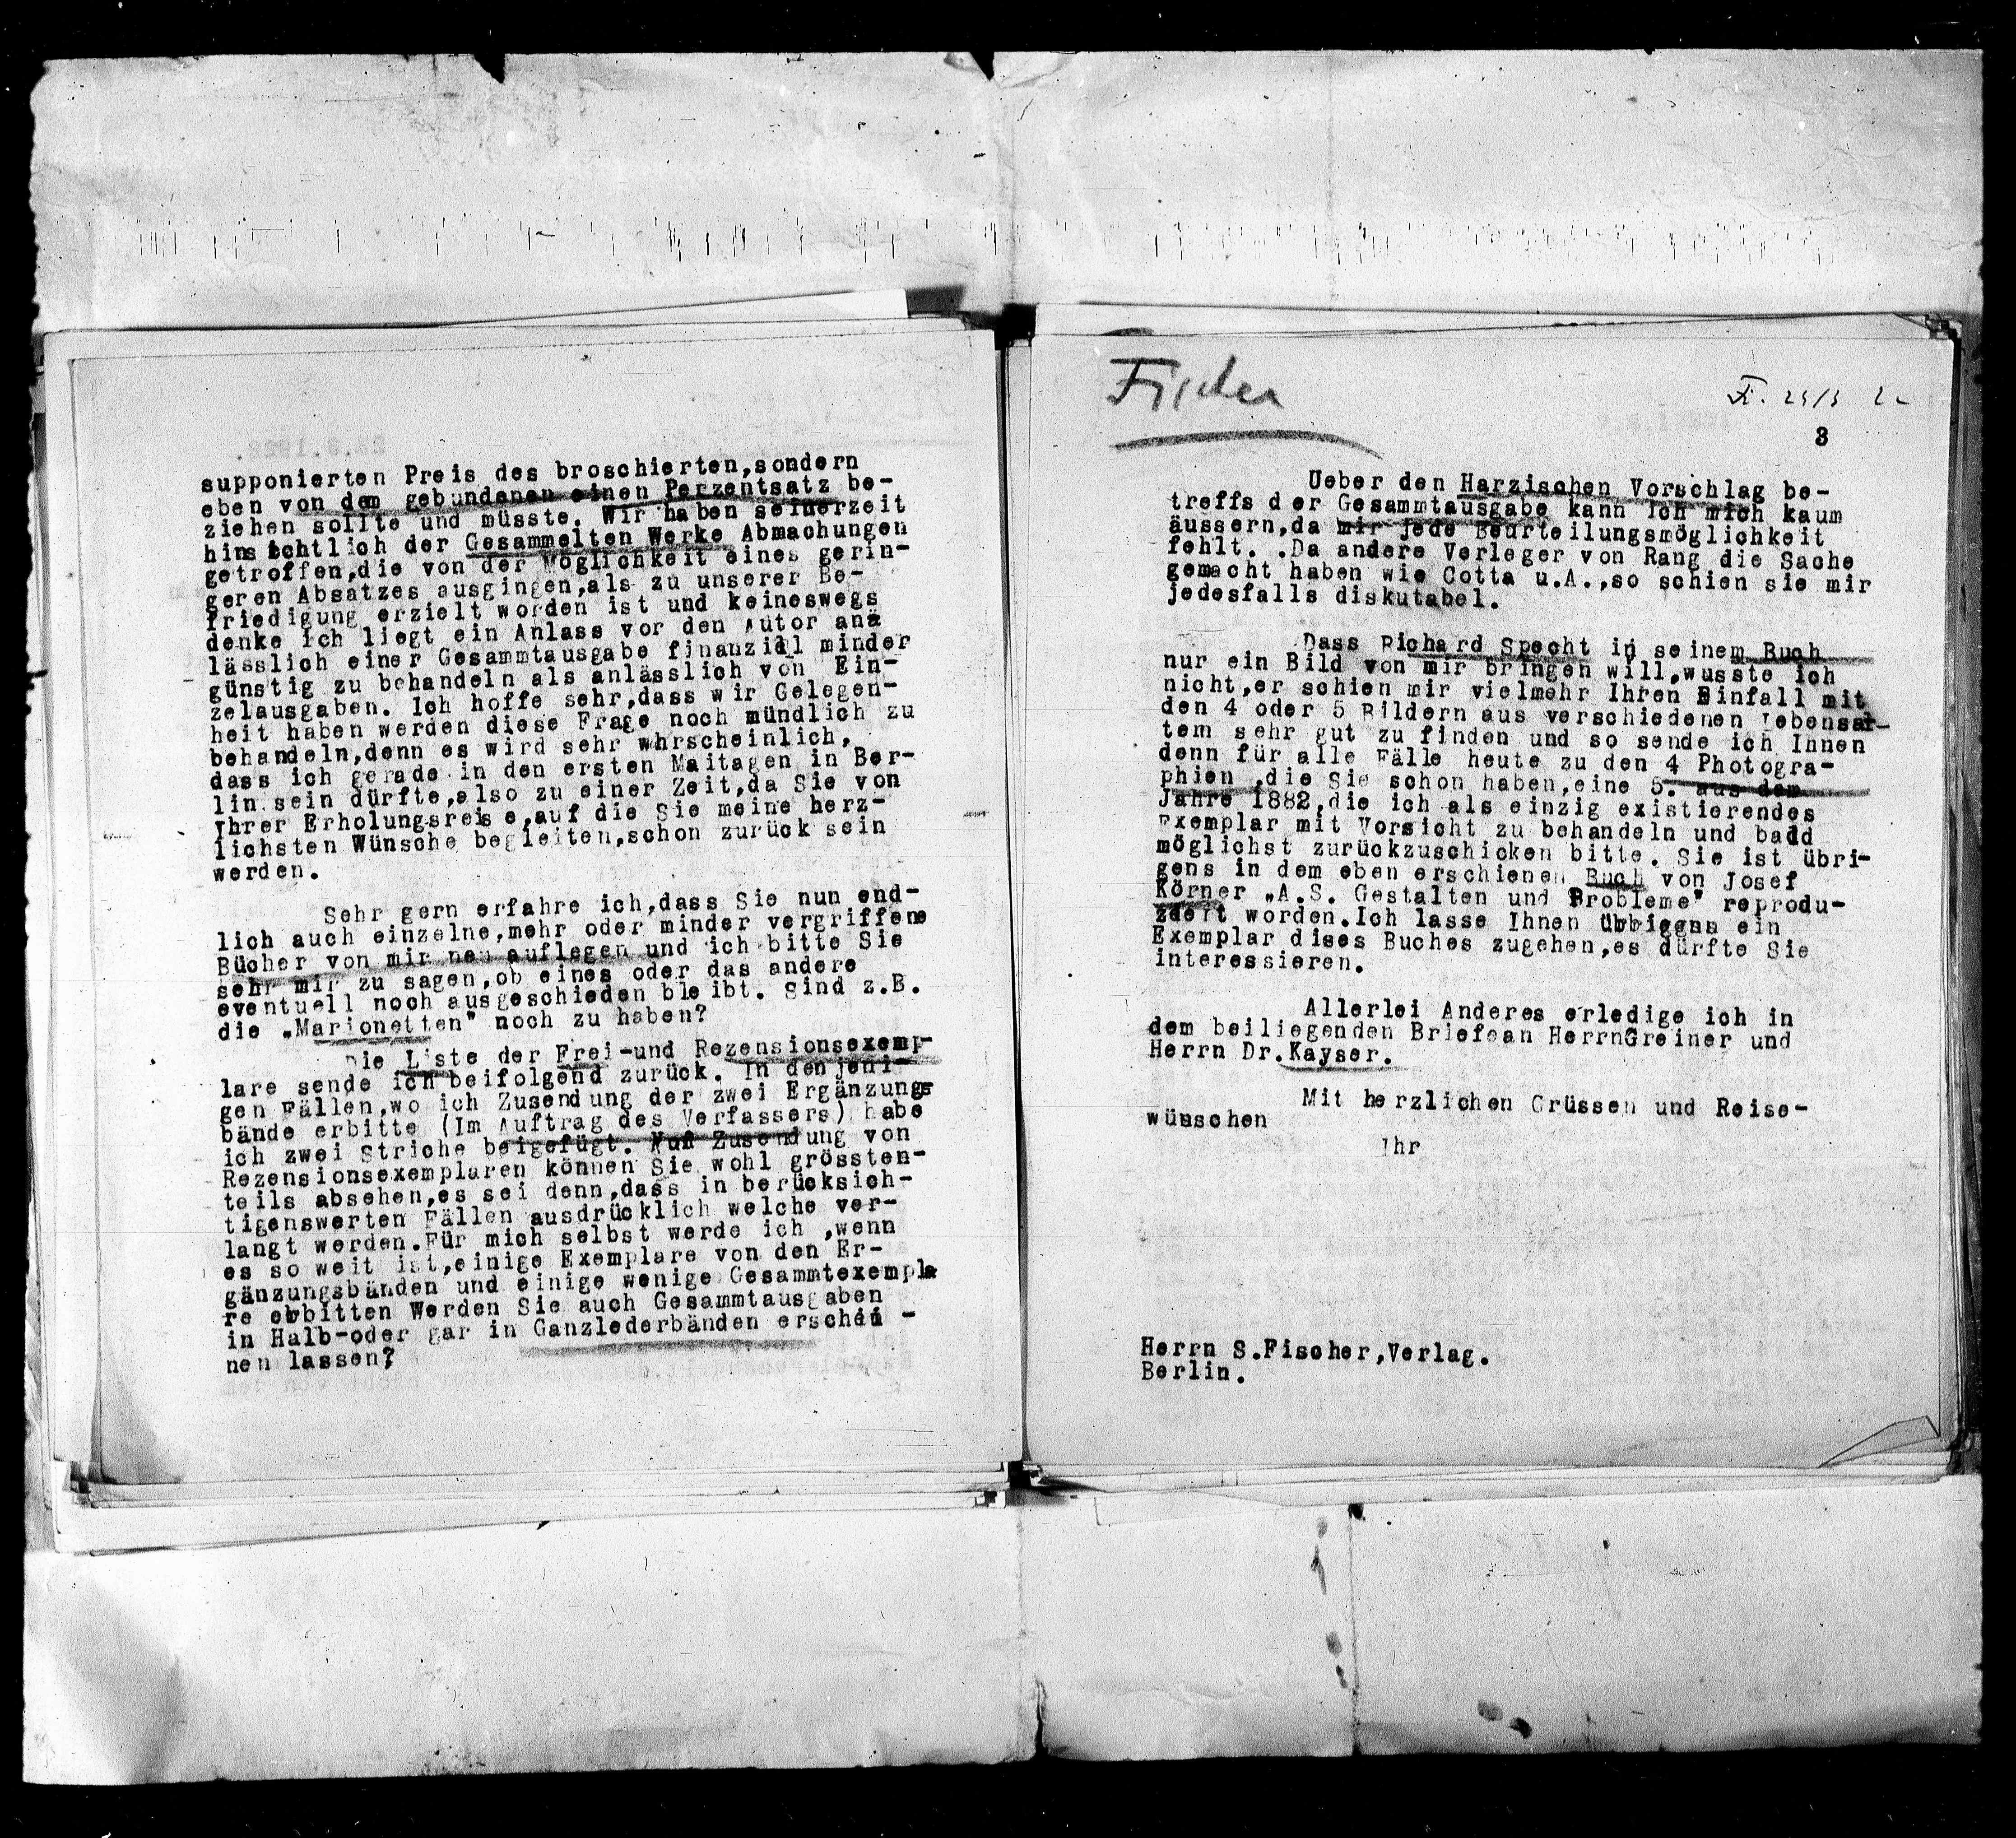 supponierten Preis des broschierten,sondern
eben von dem gebundenen einen Perzentsatz be-
ziehen sollte und müsste. Wir haben seinerzeit
hinsichtlich der Gesammelten Werke Abmachungen
getroffen,die von der Möglichkeit eines gerin-
geren Absatzes ausgingen,als zu unserer Be-
friedigung erzielt worden ist und keineswegs
denke ich liegt ein Anlass vor den Autor anä
lässlich einer Gesammtausgabe finanziell minder
günstig zu behandeln als anlässlich von Ein-
zelausgaben. Ich hoffe sehr,dass wir Gelegen-
heit haben werden diese Frage noch mündlich zu
behandeln,denn es wird sehr whrscheinlich,
dass ich gerade in den ersten Maitagen in Ber-
lin sein dürfte,also zu einer Zeit,da Sie von
Ihrer Erholungsreise,auf die Sie meine herz-
lichsten Wünsche begleiten,schon zurück sein
werden.
Sehr gern erfahre ich,dass Sie nun end-
lich auch einzelne,mehr oder minder vergriffene
Bücher von mir neu auflegen und ich bitte Sie
sehr mir zu sagen,ob eines oder das andere
eventuell noch ausgeschieden bleibt. Sind z.B.
die „Marionetten" noch zu haben?
Die Liste der Frei-und Rezensionsexemp-
lare sende ich beifolgend zurück. In den jeni-
gen Fällen,wo ich Zusendung der zwei Ergänzungs
bände erbitte (Im Auftrag des Verfassers) habe
ich zwei Striche beigefügt. Von Zusendung von
Rezensionsexemplaren können Sie wohl grössten-
teils absehen,es sei denn,dass in berücksich-
tigenswerten Fällen ausdrücklich welche ver-
langt werden.Für mich selbst werde ich ,wenn
es so weit ist,einige Exemplare von den Er-
gänzungsbänden und einige wenige Gesammtexempla
re erbitten Werden Sie auch Gesammtausgaben
in Halb-oder gar in Ganzlederbänden erschei -
nen lassen?
Fischer
3
Ueber den Harzischen Vorschlag be-
treffs der Gesammtausgabe kann ich mich kaum
äussern,da mir jede Beurteilungsmöglichkeit
fehlt. .Da andere Verleger von Rang die Sache
gemacht haben wie Cotta u.A.,so schien sie mir
jedesfalls diskutabel.
Dass Richard Specht in seinem Buch
nur ein Bild von mir bringen will,wusste ich
nicht,er schien mir vielmehr Ihren Einfall mit
den 4 oder 5 Bildern aus verschiedenen Lebensal-
tern sehr gut zu finden und so sende ich Ihnen
denn für alle Fälle heute zu den 4 Photogra-
phien ,die Sie schon haben,eine 5. aus dem
Jahre 1882,die ich als einzig existierendes
Exemplar mit Vorsicht zu behandeln und bald
möglichst zurückzuschicken bitte. Sie ist übri-
gens in dem eben erschienen Buch von Josef
Körner „A.S. Gestalten und Probleme" reprodu-
ziert worden.Ich lasse Ihnen übriggns ein
Exemplar dises Buches zugehen,es dürfte Sie
interessieren.
Allerlei Anderes erledige ich in
dem beiliegenden Briefean HerrnGreiner und
Herrn Dr.Kayser.
Mit herzlichen Grüssen und Reise-
wünschen
Ihr
Herrn S.Fischer,Verlag.
Berlin.